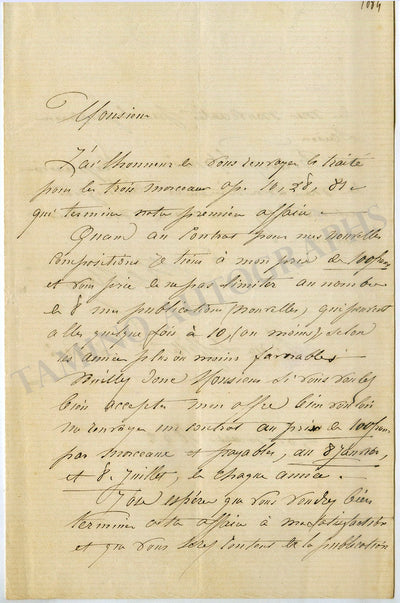 1084
Monsieur
J'ai l'honneur de vous renvoyer le traité
pour les trois morceaux op. 10, 28, 81
qui termine notre première affaire.
Quant au Contrat pour mes nouvelles
compositions je tiens à mon prix de 100 francs
et vous prie de ne pas limiter au nombre
de 8 mes publications (nouvelles) qui peuvent
aller quelque fois à 10, (au moins) selon
les années plus ou moins favorables.
Veuillez donc Monsieur si vous voulez
bien accepter mon offre bien vouloir
m'envoyer un contrat au prix de 100 francs
par morceaux et payables, au 8 Janvier,
et 8. Juillet, de chaque année.
J'ose espérer que vous voudrez bien
terminer cette affaire à ma satisfaction
et que vous serez content de la publication
TAMINO AUTOGRAPHS